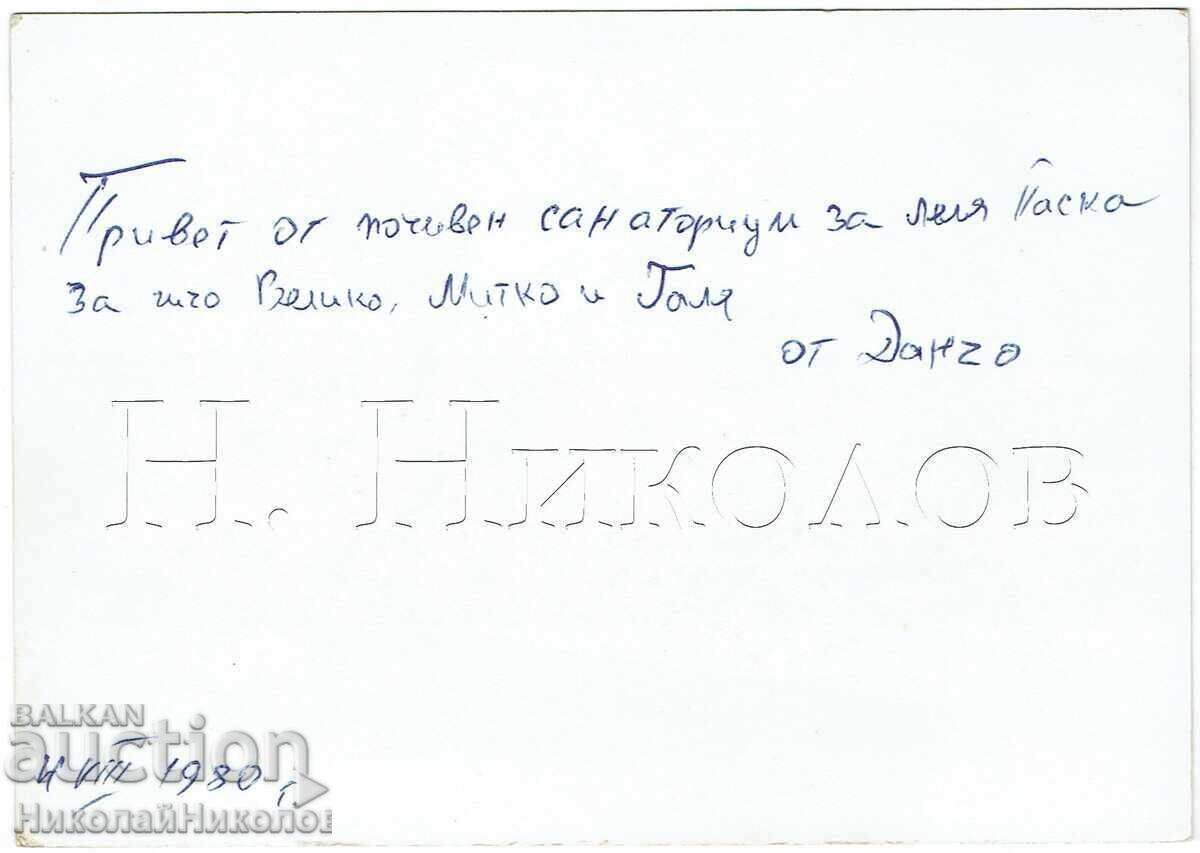 Привет от почивен санаториум за леля Паска
за чичо Велико, Митко и Галя
от Данчо
Н. Николов
BALKAN
auction
VIII 1980 г.
НиколайНиколов